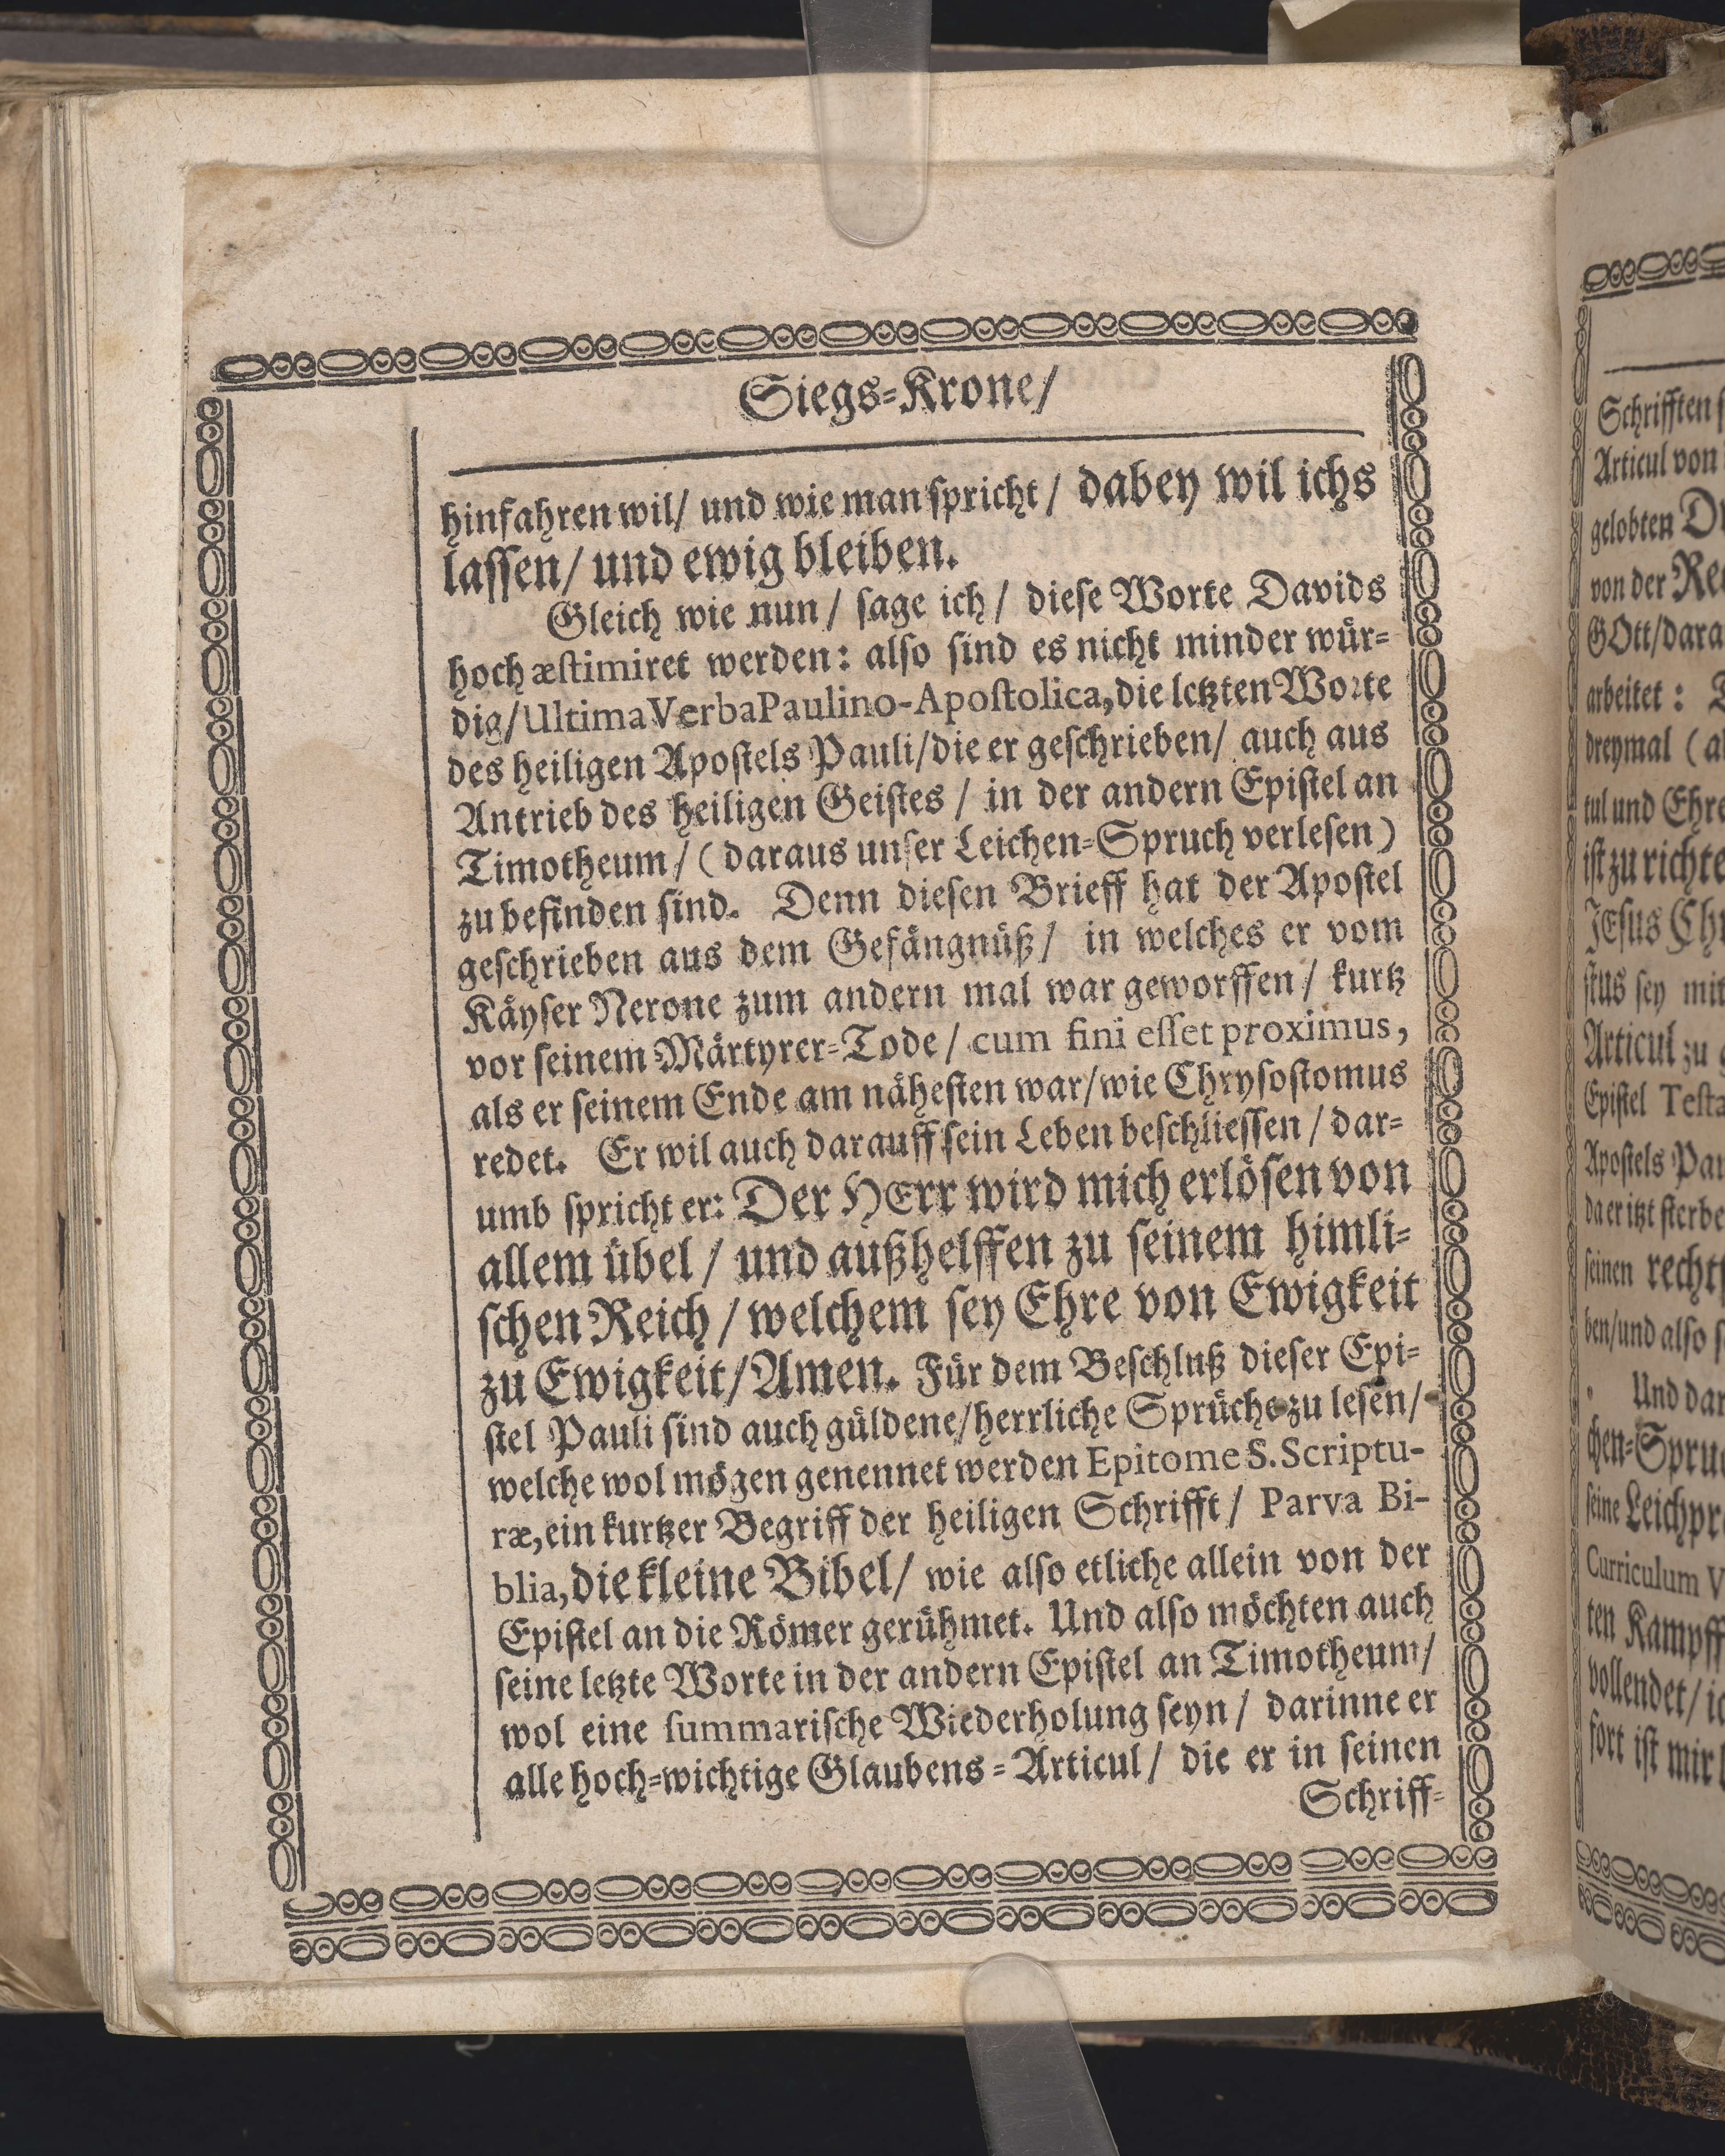 Siegs-Krone/
hinfahren wil/ und wie man spricht/ dabey wil ichs
lassen/ und ewig bleiben.
Gleich wie nun/ sage ich/ diese Worte Davids
hoch æstimiret werden: also sind es nicht minder wür-
dig/ Ultima Verba Paulino-Apostolica, die letzten Worte
des heiligen Apostels Pauli/ die er geschrieben/ auch aus
Antrieb des heiligen Geistes/ in der andern Epistel an
Timotheum/ (daraus unser Leichen-Spruch verlesen)
zu befinden sind. Denn diesen Brieff hat der Apostel
geschrieben aus dem Gefängnüß/ in welches er vom
Käyser Nerone zum andern mal war geworffen/ kurtz
vor seinem Märtyrer-Tode/ cum fini esset proximus,
als er seinem Ende am nähesten war/ wie Chrysostomus
redet. Er wil auch darauff sein Leben beschliessen/ dar-
umb spricht er: Der HErr wird mich erlösen von
allem übel/ und außhelffen zu seinem himli-
schen Reich/ welchem sey Ehre von Ewigkeit
zu Ewigkeit/ Amen. Für dem Beschluß dieser Epi-
stel Pauli sind auch güldene/ herrliche Sprüche zu lesen/
welche wol mögen genennet werden Epitome S. Scriptu-
ræ, ein kurtzer Begriff der heiligen Schrifft/ Parva Bi-
blia, die kleine Bibel/ wie also etliche allein von der
Epistel an die Römer gerühmet. Und also möchten auch
seine letzte Worte in der andern Epistel an Timotheum/
wol eine summarische Wiederholung seyn/ darinne er
alle hoch-wichtige Glaubens-Articul/ die er in seinen
Schriff-
Schrifften
Articul von
gelobten
von der
GOtt/
arbeitet:
dreymal
tul und
ist zu
JEsus
stus sey mit
Articul zu
Epistel
Apostels
da er itzt
seinen
ben/ und also
Und
chen-
seine
Curriculum
ten
vollendet/
fort ist mir